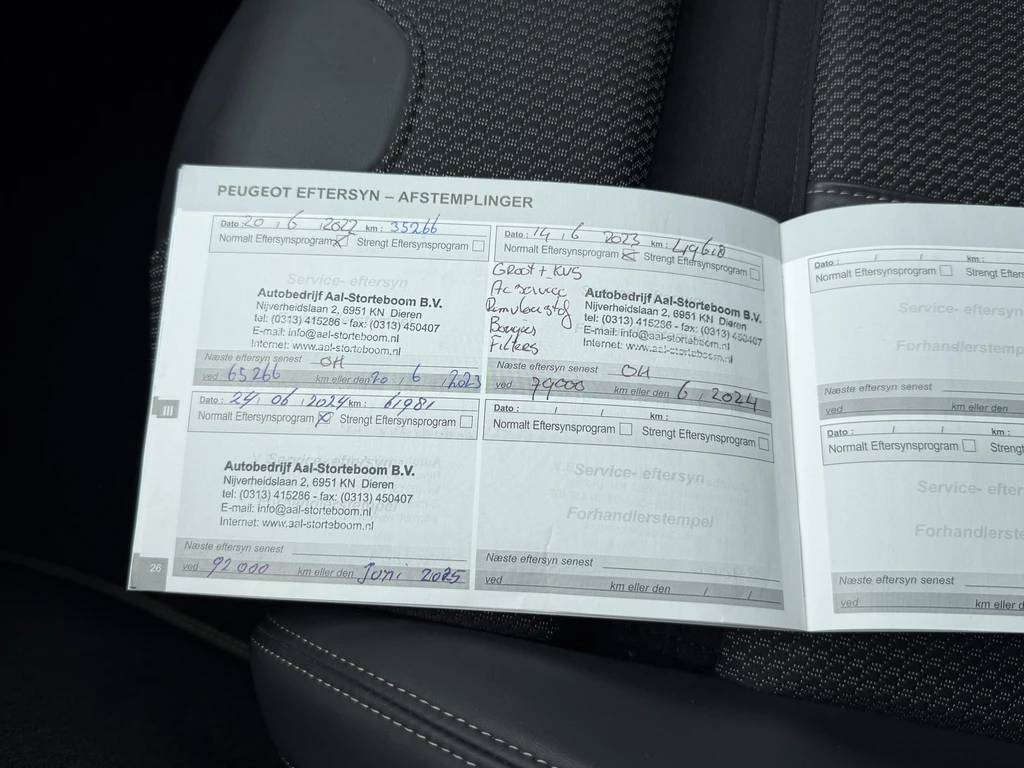 PEUGEOT EFTERSYN – AFSTEMPLINGER
Dato: 20 / 6 / 2022 km: 35266
Normalt Eftersynsprogram ☒ Strengt Eftersynsprogram ☐
Service- eftersyn
Autobedrijf Aal-Storteboom B.V.
Nijverheidslaan 2, 6951 KN Dieren
tel: (0313) 415286 - fax: (0313) 450407
E-mail: info@aal-storteboom.nl
Internet: www.aal-storteboom.nl
Næste eftersyn senest OH
ved 65266 km eller den 20 / 6 / 2023
Dato: 14 / 6 2023 km: 49618
Normalt Eftersynsprogram ☒ Strengt Eftersynsprogram ☐
Groot + KUS
Ac service
Remvloeistof
Bougies
Filters
Autobedrijf Aal-Storteboom B.V.
Nijverheidslaan 2, 6951 KN Dieren
tel: (0313) 415286 - fax: (0313) 450407
E-mail: info@aal-storteboom.nl
Internet: www.aal-storteboom.nl
Næste eftersyn senest OH
ved 79000 km eller den 6 / 2024
III
Dato: 24 / 06 / 2024 km: 61981
Normalt Eftersynsprogram ☒ Strengt Eftersynsprogram ☐
Service- eftersyn
Autobedrijf Aal-Storteboom B.V.
Nijverheidslaan 2, 6951 KN Dieren
tel: (0313) 415286 - fax: (0313) 450407
E-mail: info@aal-storteboom.nl
Internet: www.aal-storteboom.nl
Næste eftersyn senest
ved 92000 km eller den Juni 2025
26
Dato: / / km:
Normalt Eftersynsprogram ☐ Strengt Eftersynsprogram ☐
Service- eftersyn
Forhandlerstempel
Næste eftersyn senest
ved km eller den / /
Dato: / / km:
Normalt Eftersynsprogram ☐ Strengt Efters
Service- eftersyn
Forhandlerstemp
Næste eftersyn senest
ved km eller den
Dato: / / km:
Normalt Eftersynsprogram ☐ Streng
Service- efter
Forhandlerste
Næste eftersyn senest
ved km eller d